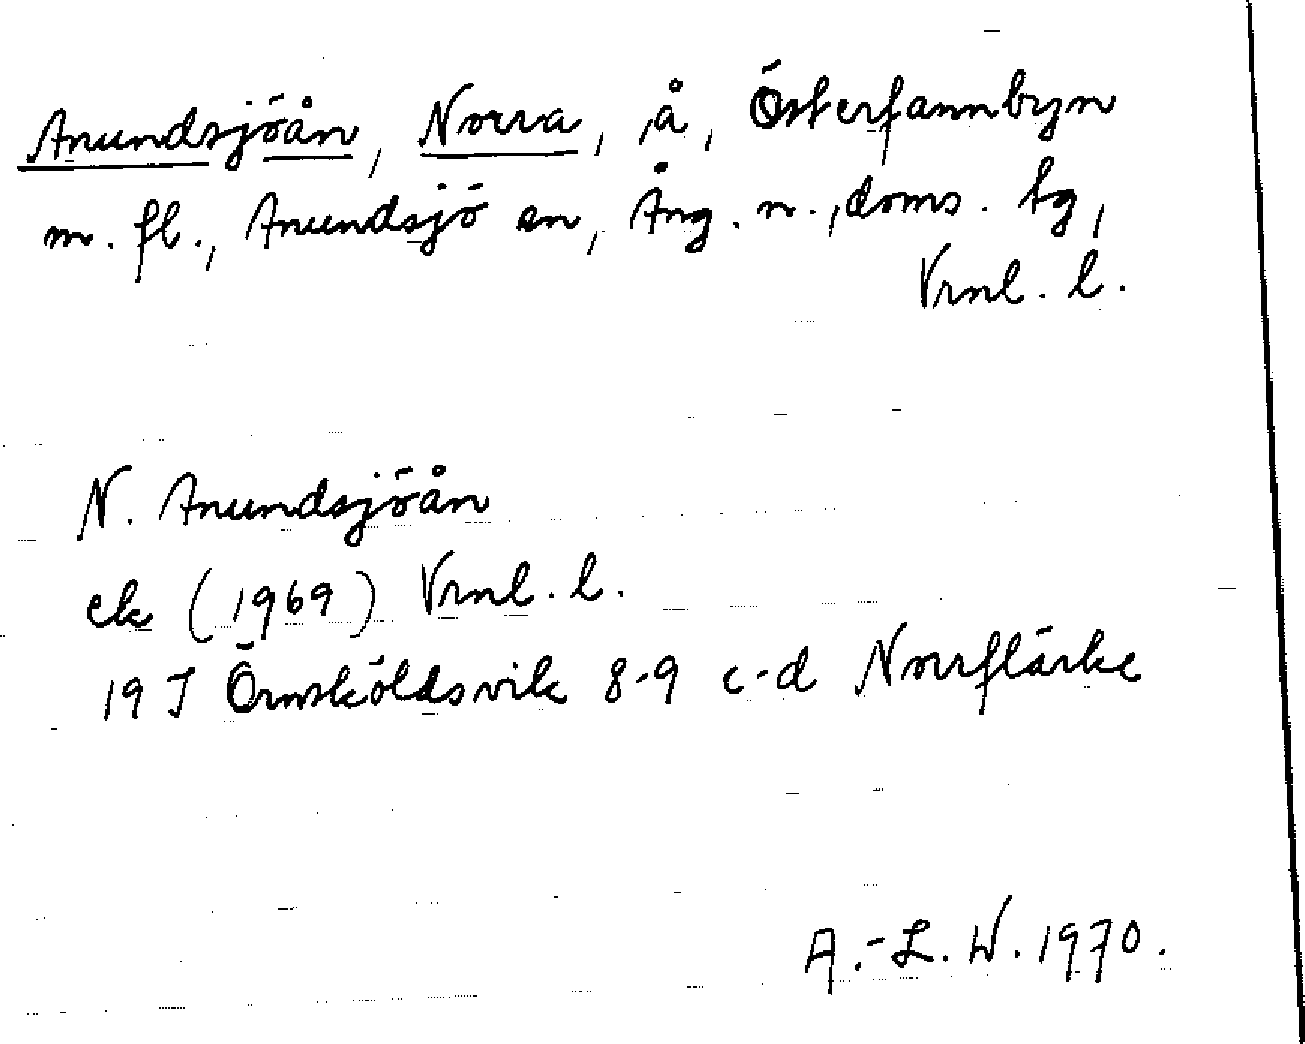 Anundsjöån, Norra, å, Österfannbyn
m. fl., Anundsjö sn, Ång. n., doms. tg,
Vrnl. l.
N. Anundsjöån
ek (1969) Vrnl. l.
19 J Örnsköldsvik 8-9 c-d Norrflärke
A.-L. W. 1970.